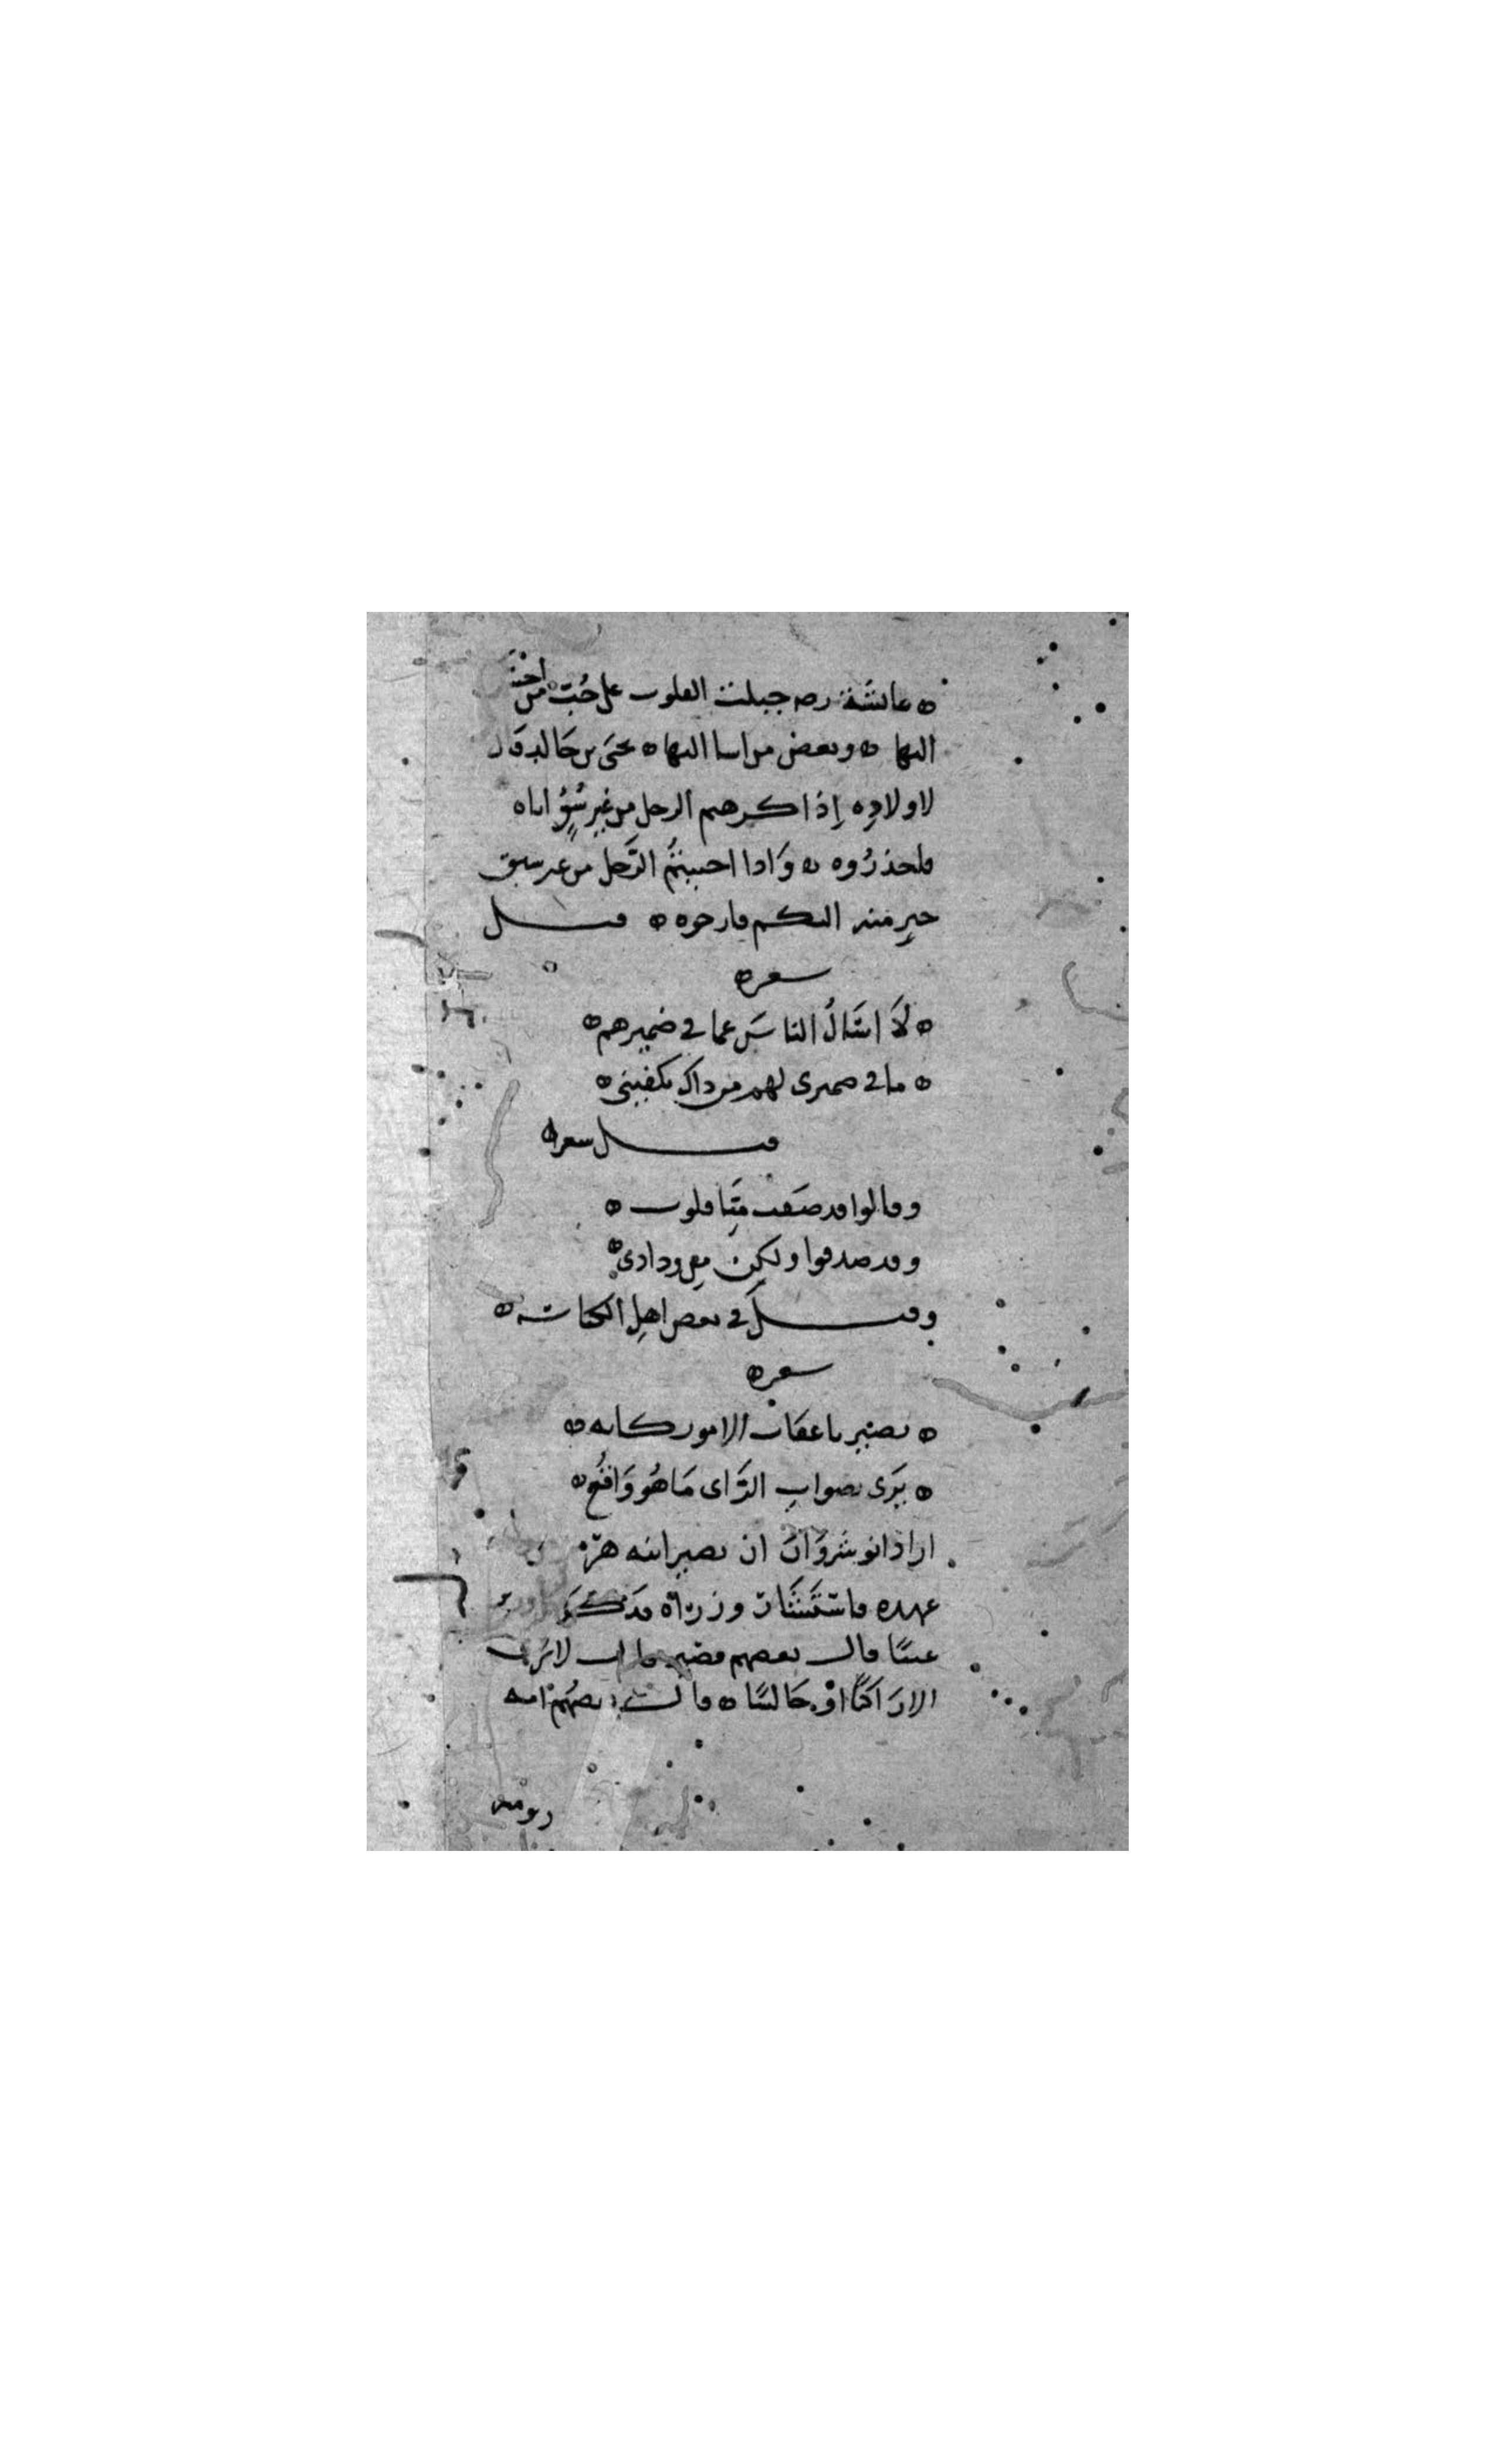 ه عائشة رضه جبلت القلوب على حُبّ من احسن
اليها ه وبعض من اسا اليها ه يحيَى بن خَالِد قَال
لاولادِه إذا كرهتم الرجل من غيرِ سُوٍّ اتاه
فاحذرُوه ه وَاذا احببتُم الرَّجل من غير سبق
خيرٍ منه اليكم فارجوه ه قيل
شعر ه
ه لاَ اسَالُ الناسَ عما في ضميرهم ه
ه ما في ضميرى لهم من ذاك يكفينى ه
قيل شعرا
وقالوا قد صَفت مِنَّا قلوب ه
وقد صدقوا ولكِن مِن ودادى ه
وقيل في بعض اهلِ الكتابة ه
شعر ه
ه بصير باعقاب الامور كانه ه
ه يَرَى بصوابِ الرَّاى مَا هُو وَاقعُ ه
اراد انوشروَان ان يصير ابنه هرمز
عهده فاستَشَار وزراه فذكر
عيبًا قال بعضهم قصير قال لا يُرى
الا رَاكبًا اوْ جَالسًا ه قال بعضُهم امه
رومية